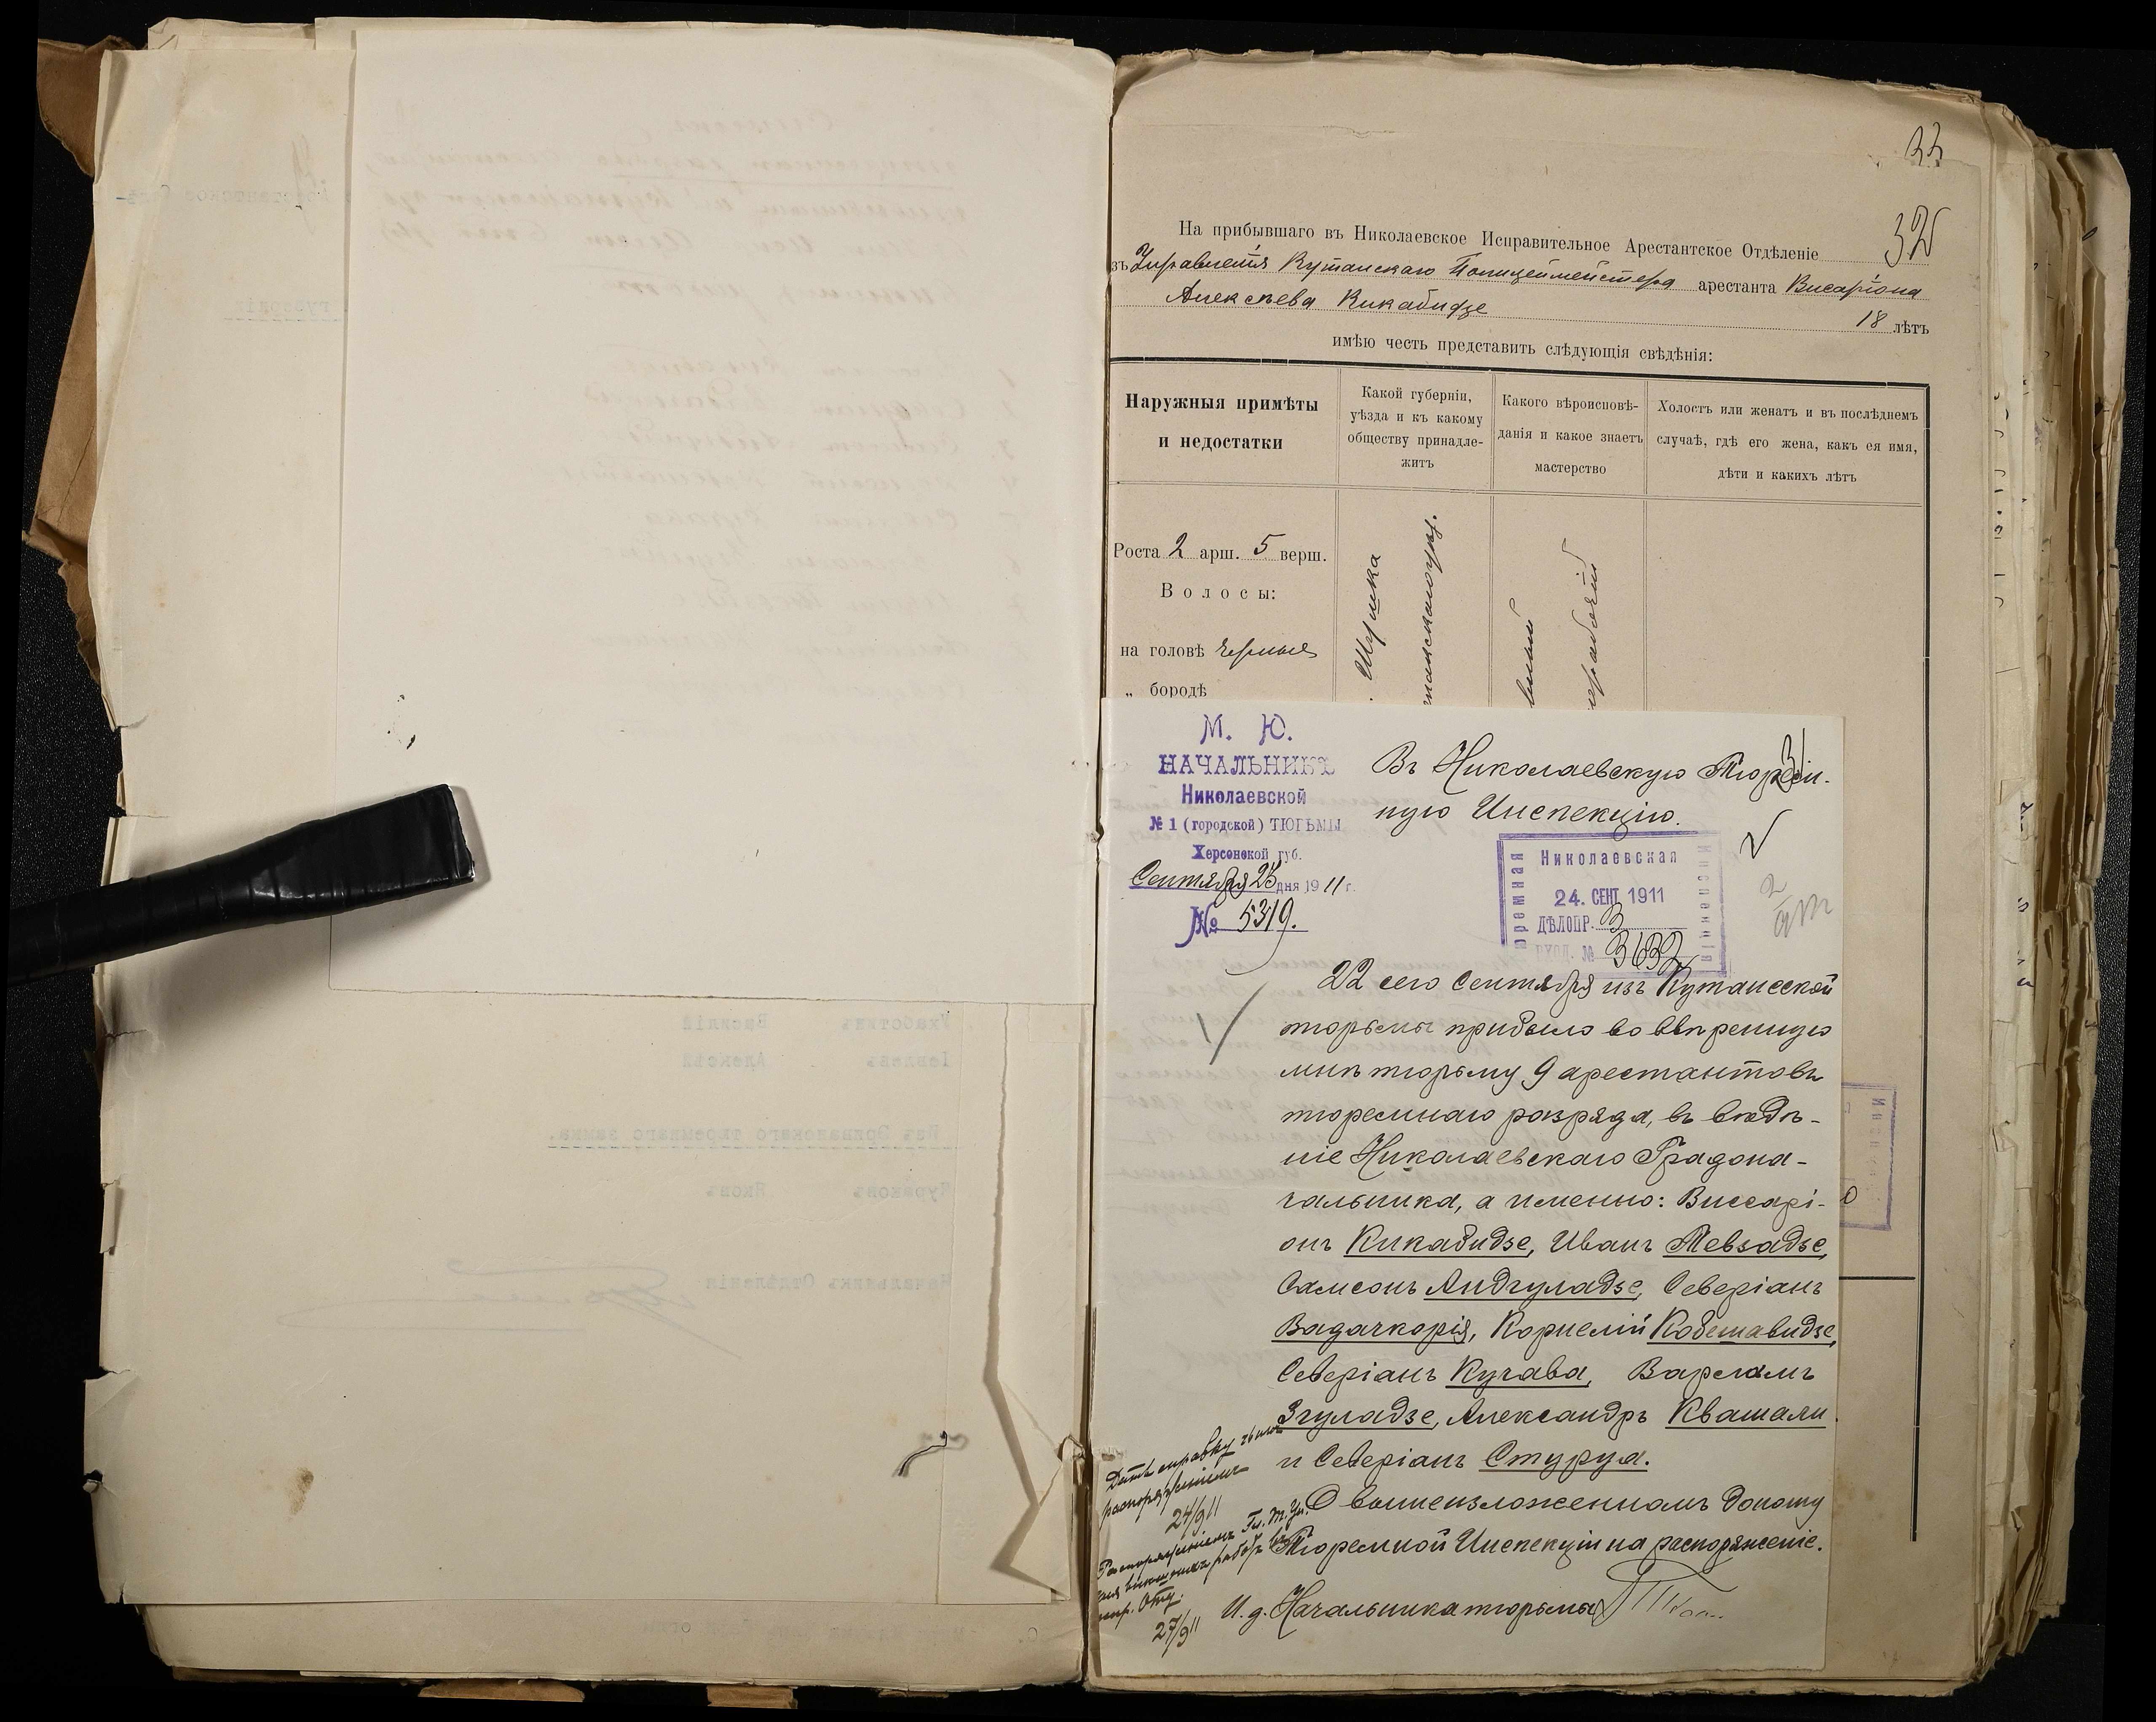 33
32
На прибывшаго въ Николаевское Исправительное Арестантское Отдѣленіе
зъ Управленія Кутаискаго Полицеймейстера арестанта Висаріона
Алексѣева Кикабидзе
18 лѣтъ
имѣю честь представить слѣдующія свѣдѣнія:
Наружныя примѣты
и недостатки
Какой губерніи,
уѣзда и къ какому
обществу принадле-
житъ
Какого вѣроисповѣ-
данія и какое знаетъ
мастерство
Холостъ или женатъ и въ послѣднемъ
случаѣ, гдѣ его жена, какъ ея имя,
дѣти и какихъ лѣтъ
Роста 2 арш. 5 верш.
Волосы:
на головѣ черные
„ бородѣ
М. Ю.
НАЧАЛЬНИКЪ
Николаевской
№ 1 (городской) ТЮРЬМЫ
Херсонской губ.
Сентября 23 дня 1911 г.
№ 5319.
31
Въ Николаевскую Тюрем-
ную Инспекцію.
Николаевская
24. СЕНТ 1911
ДѢЛОПР. 3
ВХОД. № 3632
Инспекція
22 сего Сентября изъ Кутаисской
тюрьмы прибыло во ввѣренную
мнѣ тюрьму 9 арестантовъ
тюремнаго разряда, въ вѣдѣ-
ніе Николаевскаго Градона-
чальника, а именно: Виссарі-
онъ Кикабидзе, Иванъ Мевзадзе,
Самсонъ Андгуладзе, Северіанъ
Вадачкорія, Корнелій Кобешавидзе,
Северіанъ Кучава, Варламъ
Згуладзе, Александръ Квашали
и Северіанъ Стуруа.
О вышеизложенномъ доношу
Тюремной Инспекціи на распоряженіе.
И. д. Начальника тюрьмы
Дать справку чьимъ
распоряженіемъ
24/9 11
Распоряженіемъ Гл. Т. Упр.
для внѣшнихъ работъ въ
испр. Отд.
27/9 11